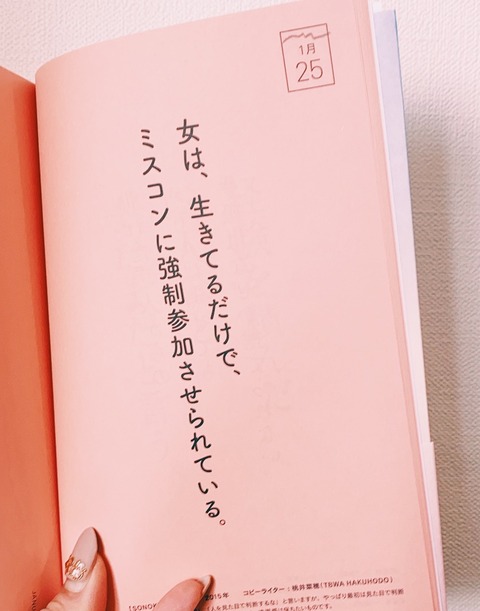 1月
25
女は、生きてるだけで、
ミスコンに強制参加させられている。
2015年 コピーライター：桃井菜穂（TBWA HAKUHODO）
人を見た目で判断するな」と思いますが、やっぱり最初は見た目で判断